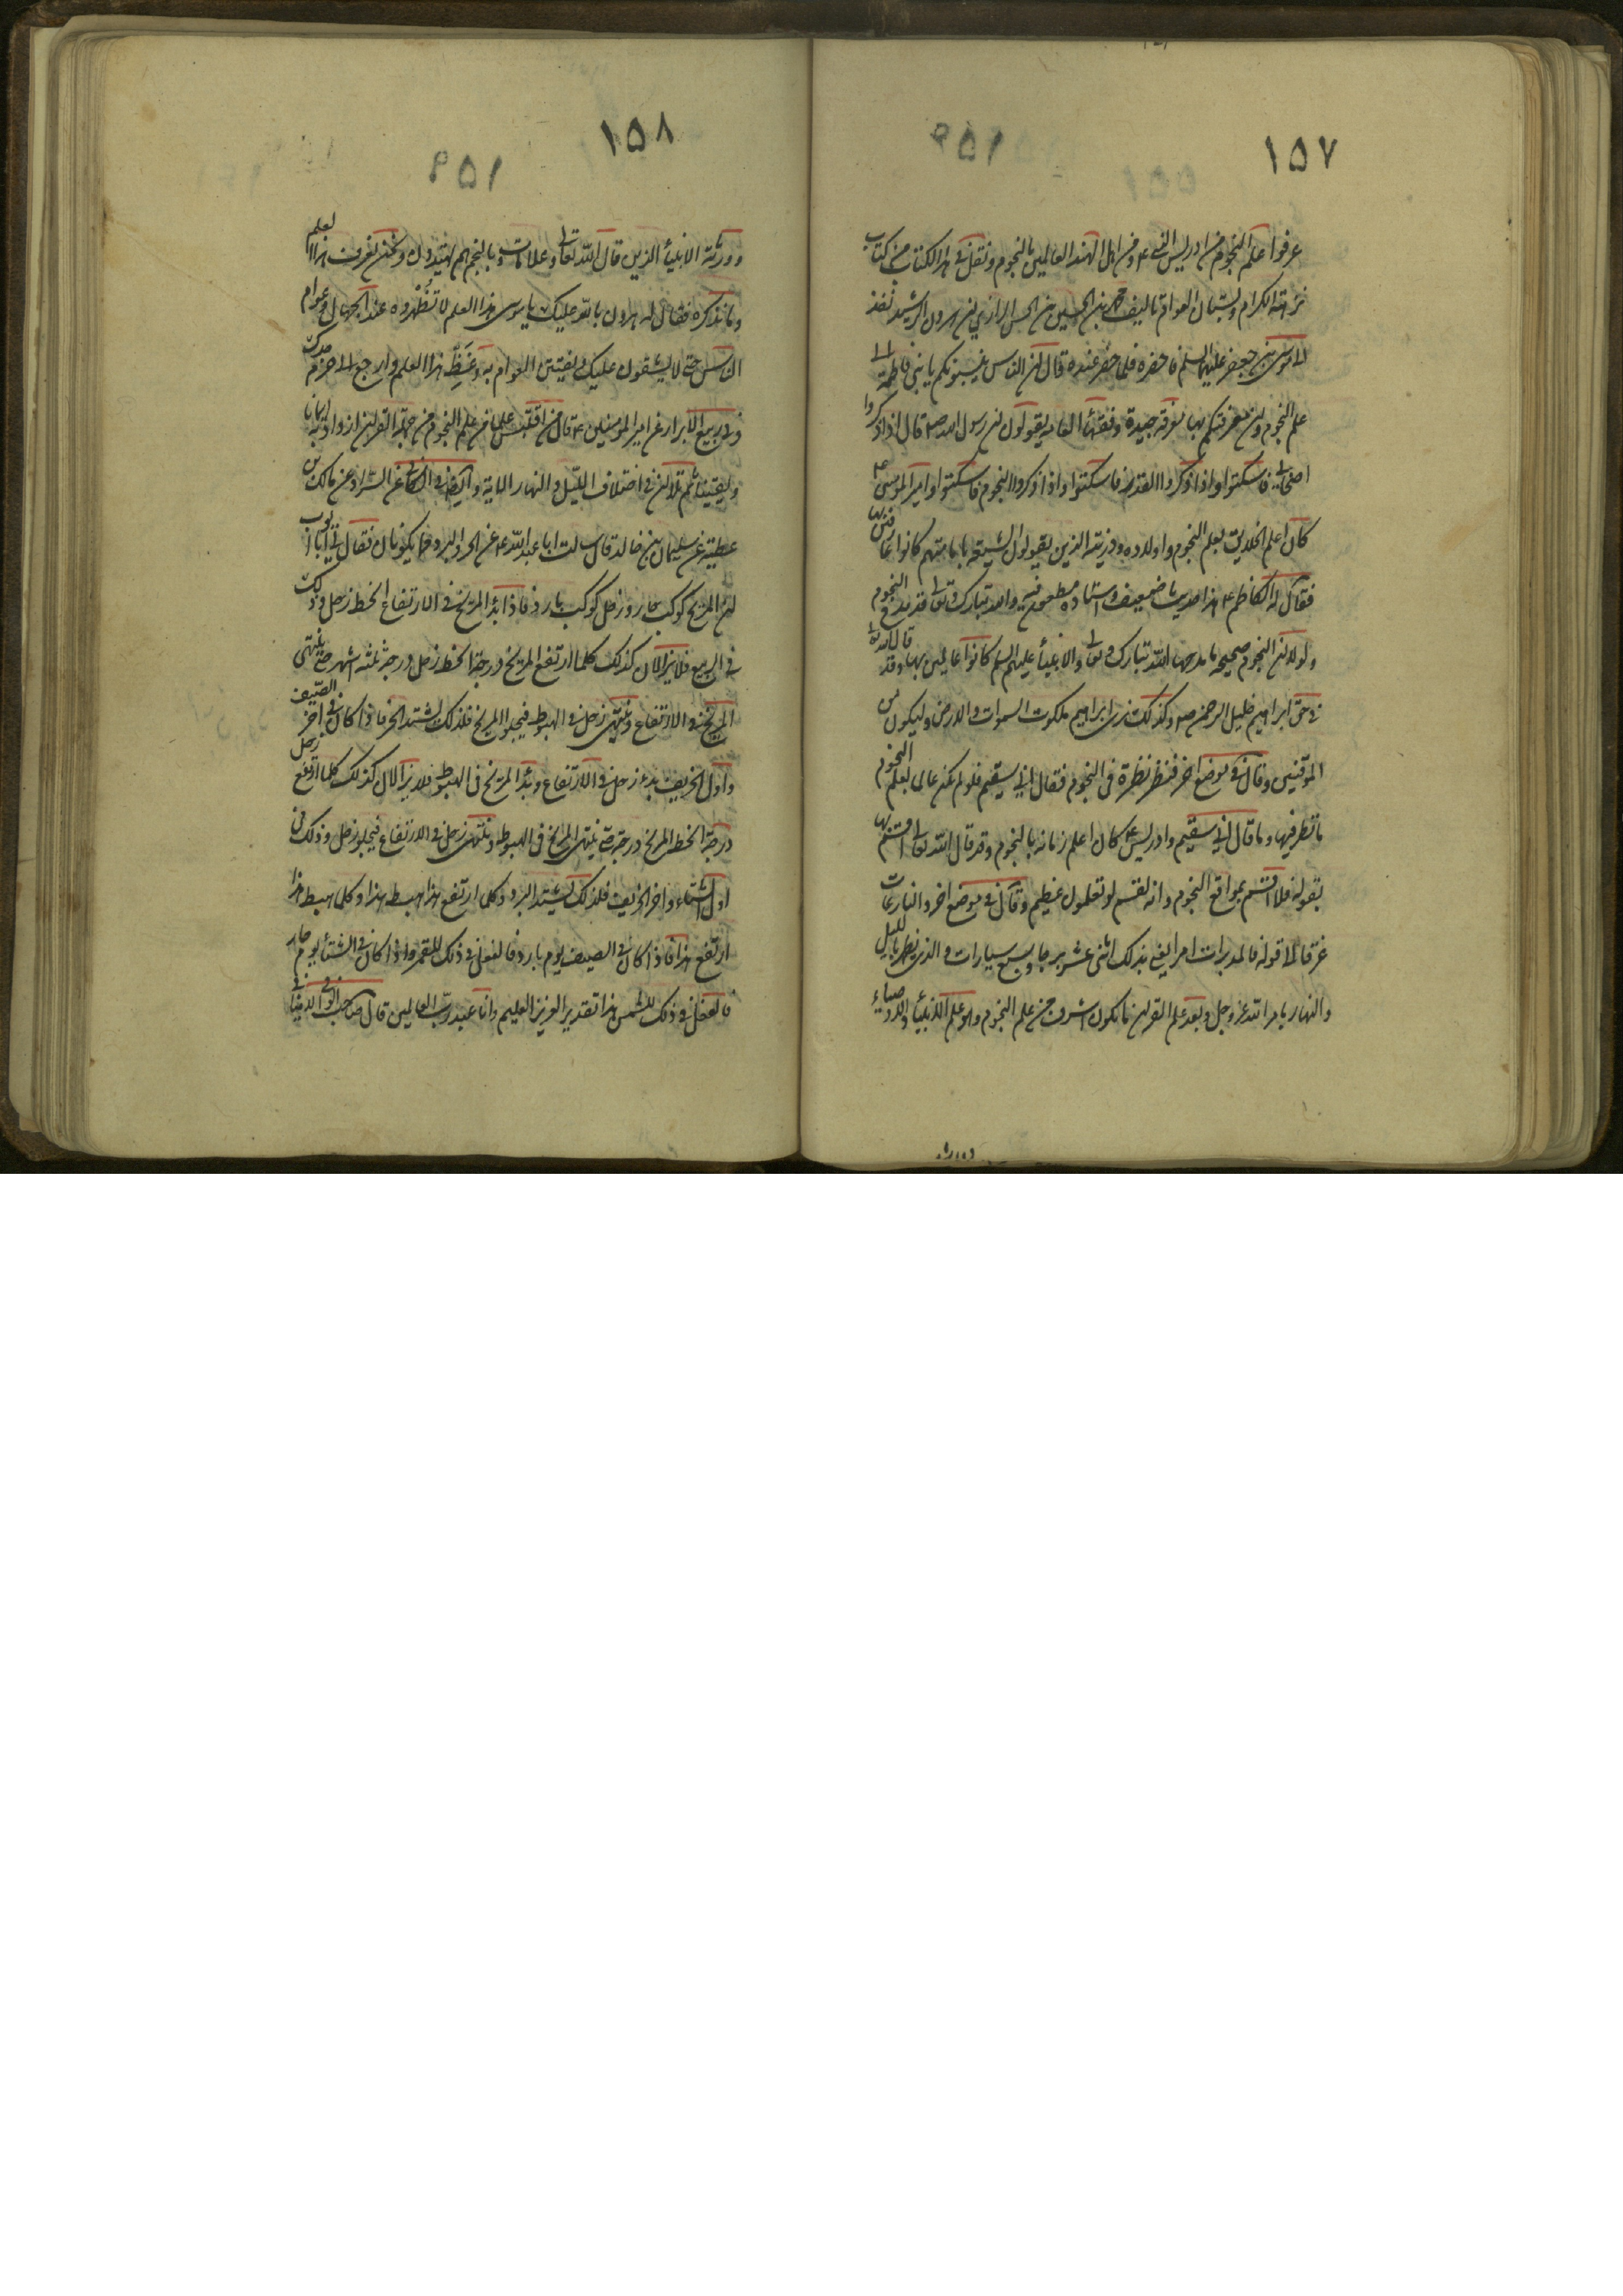 ١٥٧
عرفوا علم النجوم من ادريس النبي ع و من اهل الهند العالمين بالنجوم و نقل في هذا الكتاب من كتاب
نزهة الكرام و بستان العوام تاليف محمد بن الحسين بن الحسن الرازي ان هرون الرشيد نفذ
الى موسى بن جعفر عليهما السلم فاحضره فلما حضر عنده قال ان الناس ينسبونكم يا بني فاطمة الى
علم النجوم و ان معرفتكم بها معرفة جيدة و فقهاء العامة يقولون ان رسول الله ص قال اذا ذكروا
اصحابي فاسكتوا و اذا ذكروا القدر فاسكتوا و اذا ذكروا النجوم فاسكتوا و امير المؤمنين ع
كان اعلم الخلايق بعلم النجوم و اولاده و ذريته الذين يقولون الشيعة بامامتهم كانوا عارفين بها
فقال له الكاظم ع هذا حديث ضعيف و اسناده مطعون فيه و الله تبارك و تعالى قد مدح النجوم
و لولا ان النجوم صحيحة ما مدحها الله تبارك و تعالى و الانبياء عليهم السلم كانوا عالمين بها و قد قال الله تعالى
في حق ابراهيم خليل الرحمن ص و كذلك نري ابراهيم ملكوت السموات و الارض و ليكون من
الموقنين و قال في موضع اخر فنظر نظرة في النجوم فقال اني سقيم فلو لم يكن عالما بعلم النجوم
ما نظر فيها و ما قال اني سقيم و ادريس ع كان اعلم زمانه بالنجوم و قد قال الله تعالى اقسم بها
بقوله فلا اقسم بمواقع النجوم و انه لقسم لو تعلمون عظيم و قال في موضع اخر و النازعات
غرقا الى قوله فالمدبرات امرا يعني بذلك اثنى عشر برجا و سبع سيارات و الذي يظهر بالليل
و النهار بامر الله عز و جل و بعد علم القران ما يكون اشرف من علم النجوم و هو علم الانبياء و الاوصياء
و ورثة
١٥٨
و ورثة الانبياء الذين قال الله تعالى و علامات و بالنجم هم يهتدون و نحن نعرف هذا العلم
و ما نذكره فقال له هرون بالله عليك يا موسى هذا العلم لا تظهروه عند الجهال و عوام
الناس حتى لا يشنعون عليك و يفتتن العوام به و غط هذا العلم و ارجع الى حرم جدك
و في ربيع الابرار عن امير المؤمنين ع قال من اقتبس علما من علم النجوم من حملة القران ازداد به ايمانا
و يقينا ثم تلا ان في اختلاف الليل و النهار الاية و ايضا في الكافي عن السراد عن مالك بن
عطية عن سليمان بن خالد قال سالت ابا عبد الله ع عن الحر و البرد مما يكونان فقال لي يا ابا ايوب
ان المريخ كوكب حار و زحل كوكب بارد فاذا بدأ المريخ في الارتفاع انحط زحل و ذلك
في الربيع فلا يزالان كذلك كلما ارتفع المريخ درجة انحط زحل درجة ثلثة اشهر حتى ينتهي
المريخ في الارتفاع و ينتهي زحل في الهبوط فيجلو المريخ فلذلك يشتد الحر فاذا كان في اخر الصيف
و اول الخريف بدء زحل في الارتفاع و بدأ المريخ في الهبوط فلا يزالان كذلك كلما ارتفع زحل
درجة انحط المريخ درجة حتى ينتهي المريخ في الهبوط و ينتهي زحل في الارتفاع فيجلو زحل و ذلك في
اول الشتاء و اخر الخريف فلذلك يشتد البرد و كلما ارتفع هذا هبط هذا و كلما هبط هذا
ارتفع هذا فاذا كان في الصيف يوم بارد فالفعل في ذلك للقمر و اذا كان في الشتاء يوم حار
فالفعل في ذلك للشمس هذا تقدير العزيز العليم و انا عبد رب العالمين قال صاحب الوافي